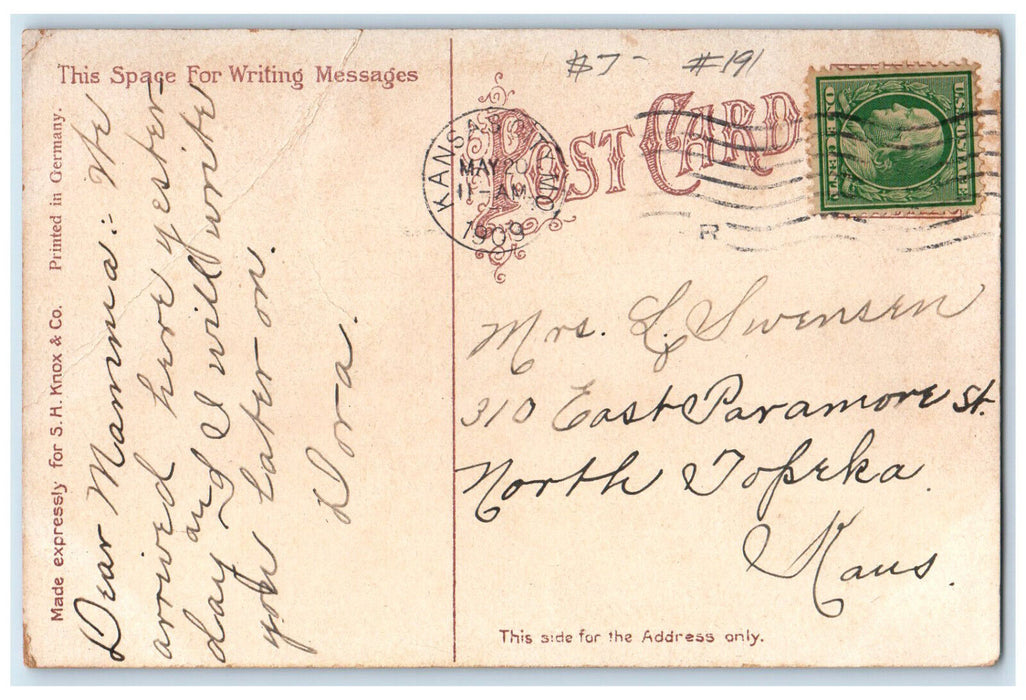 This Space For Writing Messages
Printed in Germany.
Made expressly for S.H. Knox & Co.
Dear Mamma: We
arrived here yester-
day and I will write
you later on.
Dora.
$7- #191
POST CARD
KANSAS CITY, MO.
MAY 20
11-AM
1909
R
U.S. POSTAGE
ONE CENT
Mrs. L. Swensen
310 East Paramore St.
North Topeka.
Kans.
This side for the Address only.